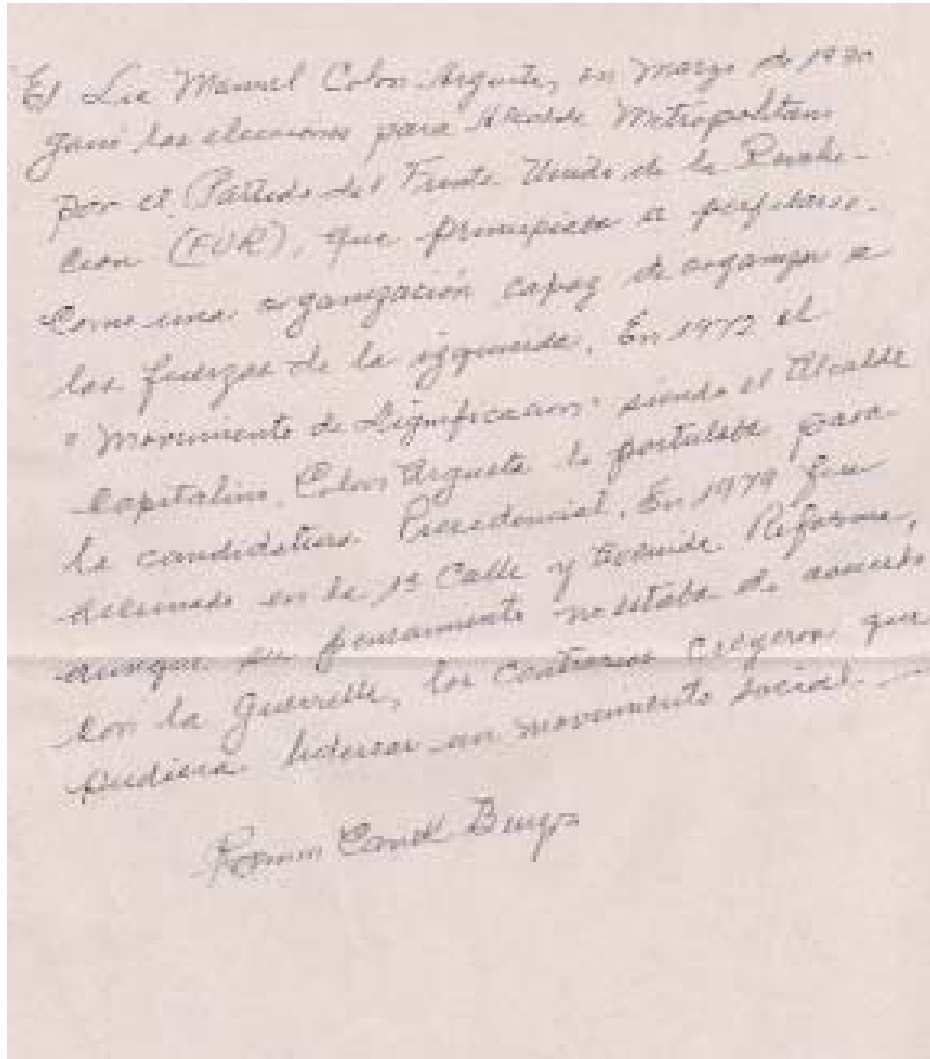 El Lic Manuel Colon Argueta, en Marzo de 1970
ganó las elecciones para Alcalde Metropolitano
por el Partido del Frente Unido de la Revolu-
cion (FUR), que principiaba a perfilarse
como una organización capaz de organizar a
las fuerzas de la izquierda. En 1977 el
"Movimiento de Dignificacion" siendo el Alcalde
Capitalino Colon Argueta lo postulaba para
la candidatura Presidencial. En 1979 fue
asesinado en la 15 Calle y Avenida Reforma,
aunque su pensamiento no estaba de acuerdo
con la Guerrilla, los contrarios creyeron que
pudiera liderear un movimiento social.